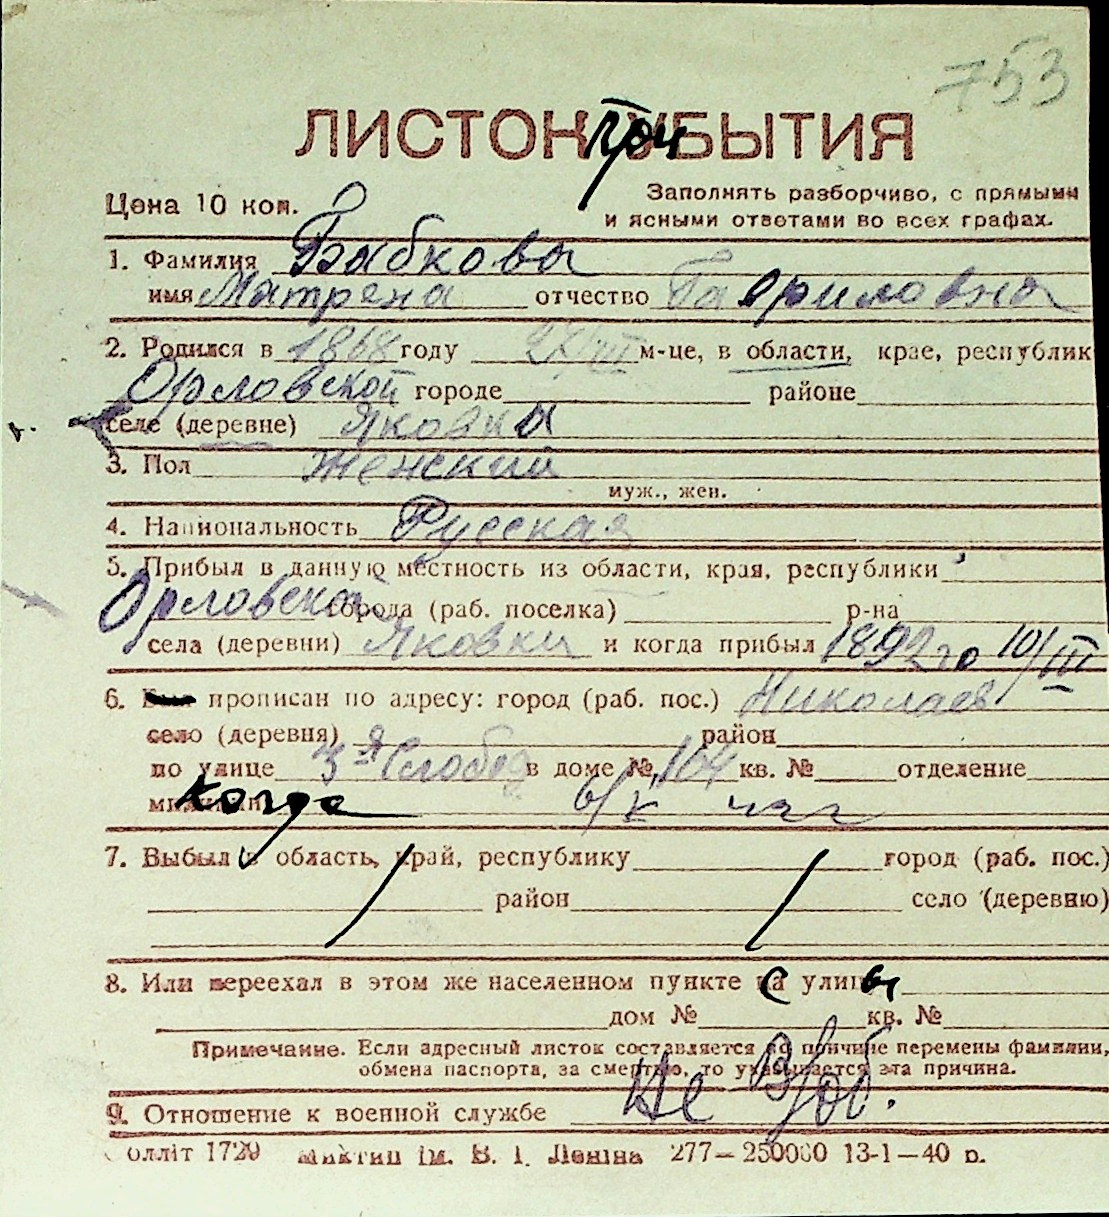 753
ЛИСТОК при УБЫТИЯ
Цена 10 коп. Заполнять разборчиво, с прямыми
и ясными ответами во всех графах.
1. Фамилия Бабкова
имя Матрена отчество Гавриловна
2. Родился в 1868 году 27/III м-це, в области, крае, республик
Орловской городе районе
селе (деревне) Яковка
3. Пол Женский
муж., жен.
4. Национальность Русская
5. Прибыл в данную местность из области, края, республики
Орловской города (раб. поселка) р-на
села (деревни) Яковки и когда прибыл 1892 го 10/III
6. Был прописан по адресу: город (раб. пос.) Николаев
село (деревня) район
по улице 3-я Слобод в доме № 104 кв. № отделение
милиции когда
7. Выбыл в область, край, республику город (раб. пос.)
район село (деревню)
8. Или переехал в этом же населенном пункте с улицы
дом № кв. №
Примечание. Если адресный листок составляется по причине перемены фамилии,
обмена паспорта, за смертью, то указывается эта причина.
9. Отношение к военной службе Не В/об.
олліт 1729 ім. В. І. Леніна 277—250000 13-1—40 р.